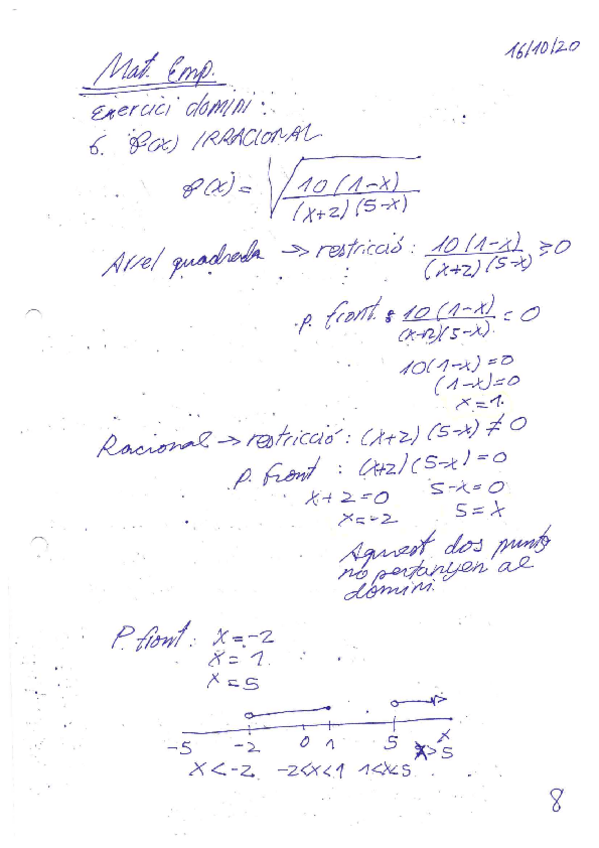 16/10/20
Mat. Emp.
Exercici domini:
6. f(x) IRRACIONAL
f(x) = √(10(1-x) / (x+2)(5-x))
Arrel quadrada → restricció: 10(1-x) / (x+2)(5-x) ≥ 0
p. front: 10(1-x) / (x+2)(5-x) = 0
10(1-x)=0
(1-x)=0
x=1.
Racional → restricció: (x+2)(5-x) ≠ 0
p. front : (x+2)(5-x)=0
x+2=0 5-x=0
x=-2 5=x
Aquest dos punts
no pertanyen al
domini.
P. front: x=-2
x=1
x=5
-5 -2 0 1 5 x
x<-2 -2<x<1 1<x<5 x>5
8